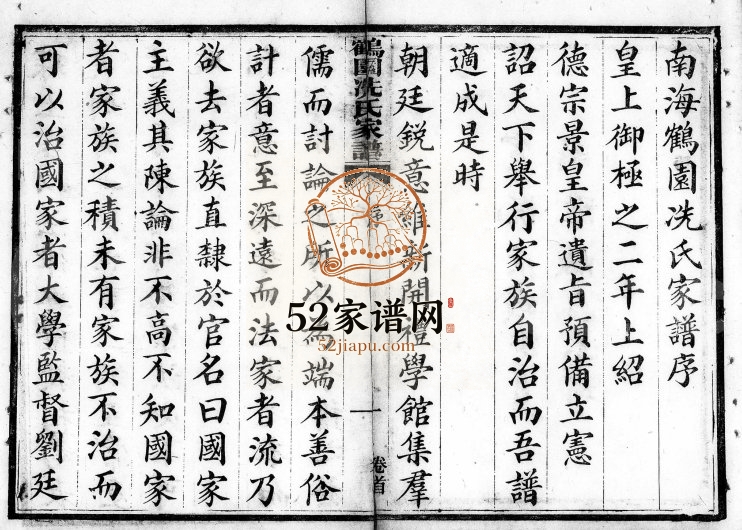 南海鶴園冼氏家譜序
皇上御極之二年上紹
德宗景皇帝遺旨預備立憲
詔天下舉行家族自治而吾譜
適成是時
朝廷銳意維新開禮學館集羣
鶴園冼氏家譜
一
卷首
儒而討論之所以為端本善俗
計者意至深遠而法家者流乃
欲去家族直隸於官名曰國家
主義其陳論非不高不知國家
者家族之積未有家族不治而
可以治國家者大學監督劉廷
52家谱网
52jiapu.com